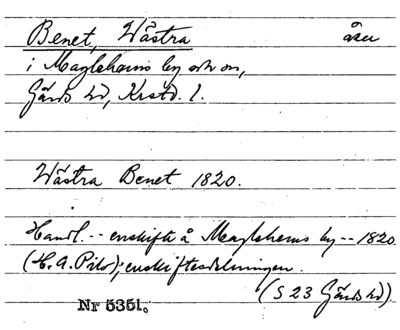 Benet, Västra åker
i Maglehems by och sn,
Gärds hd, Krstd. l.
Västra Benet 1820.
Handl. -- enskifte å Maglehems by -- 1820
(H. A. Pilo); enskiftesdelningen.
(S 23 Gärds hd)
Nr 5351.